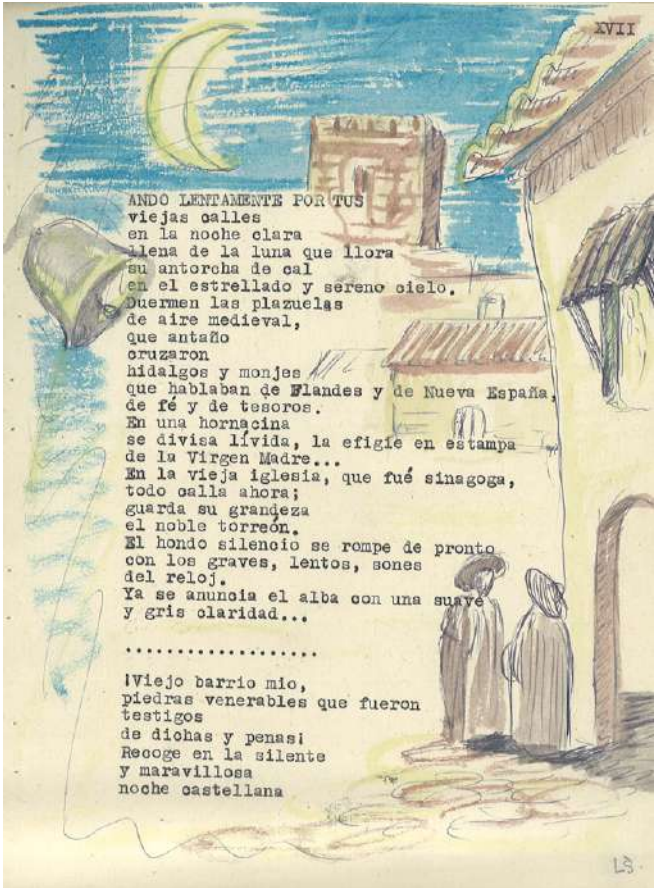 XVII
ANDO LENTAMENTE POR TUS
viejas calles
en la noche clara
llena de la luna que llora
su antorcha de cal
en el estrellado y sereno cielo.
Duermen las plazuelas
de aire medieval,
que antaño
cruzaron
hidalgos y monjes
que hablaban de Flandes y de Nueva España,
de fé y de tesoros.
En una hornacina
se divisa lívida, la efigie en estampa
de la Virgen Madre...
En la vieja iglesia, que fué sinagoga,
todo calla ahora;
guarda su grandeza
el noble torreón.
El hondo silencio se rompe de pronto
con los graves, lentos, sones
del reloj.
Ya se anuncia el alba con una suave
y gris claridad...
...................
¡Viejo barrio mio,
piedras venerables que fueron
testigos
de dichas y penas¡
Recoge en la silente
y maravillosa
noche castellana
LS.